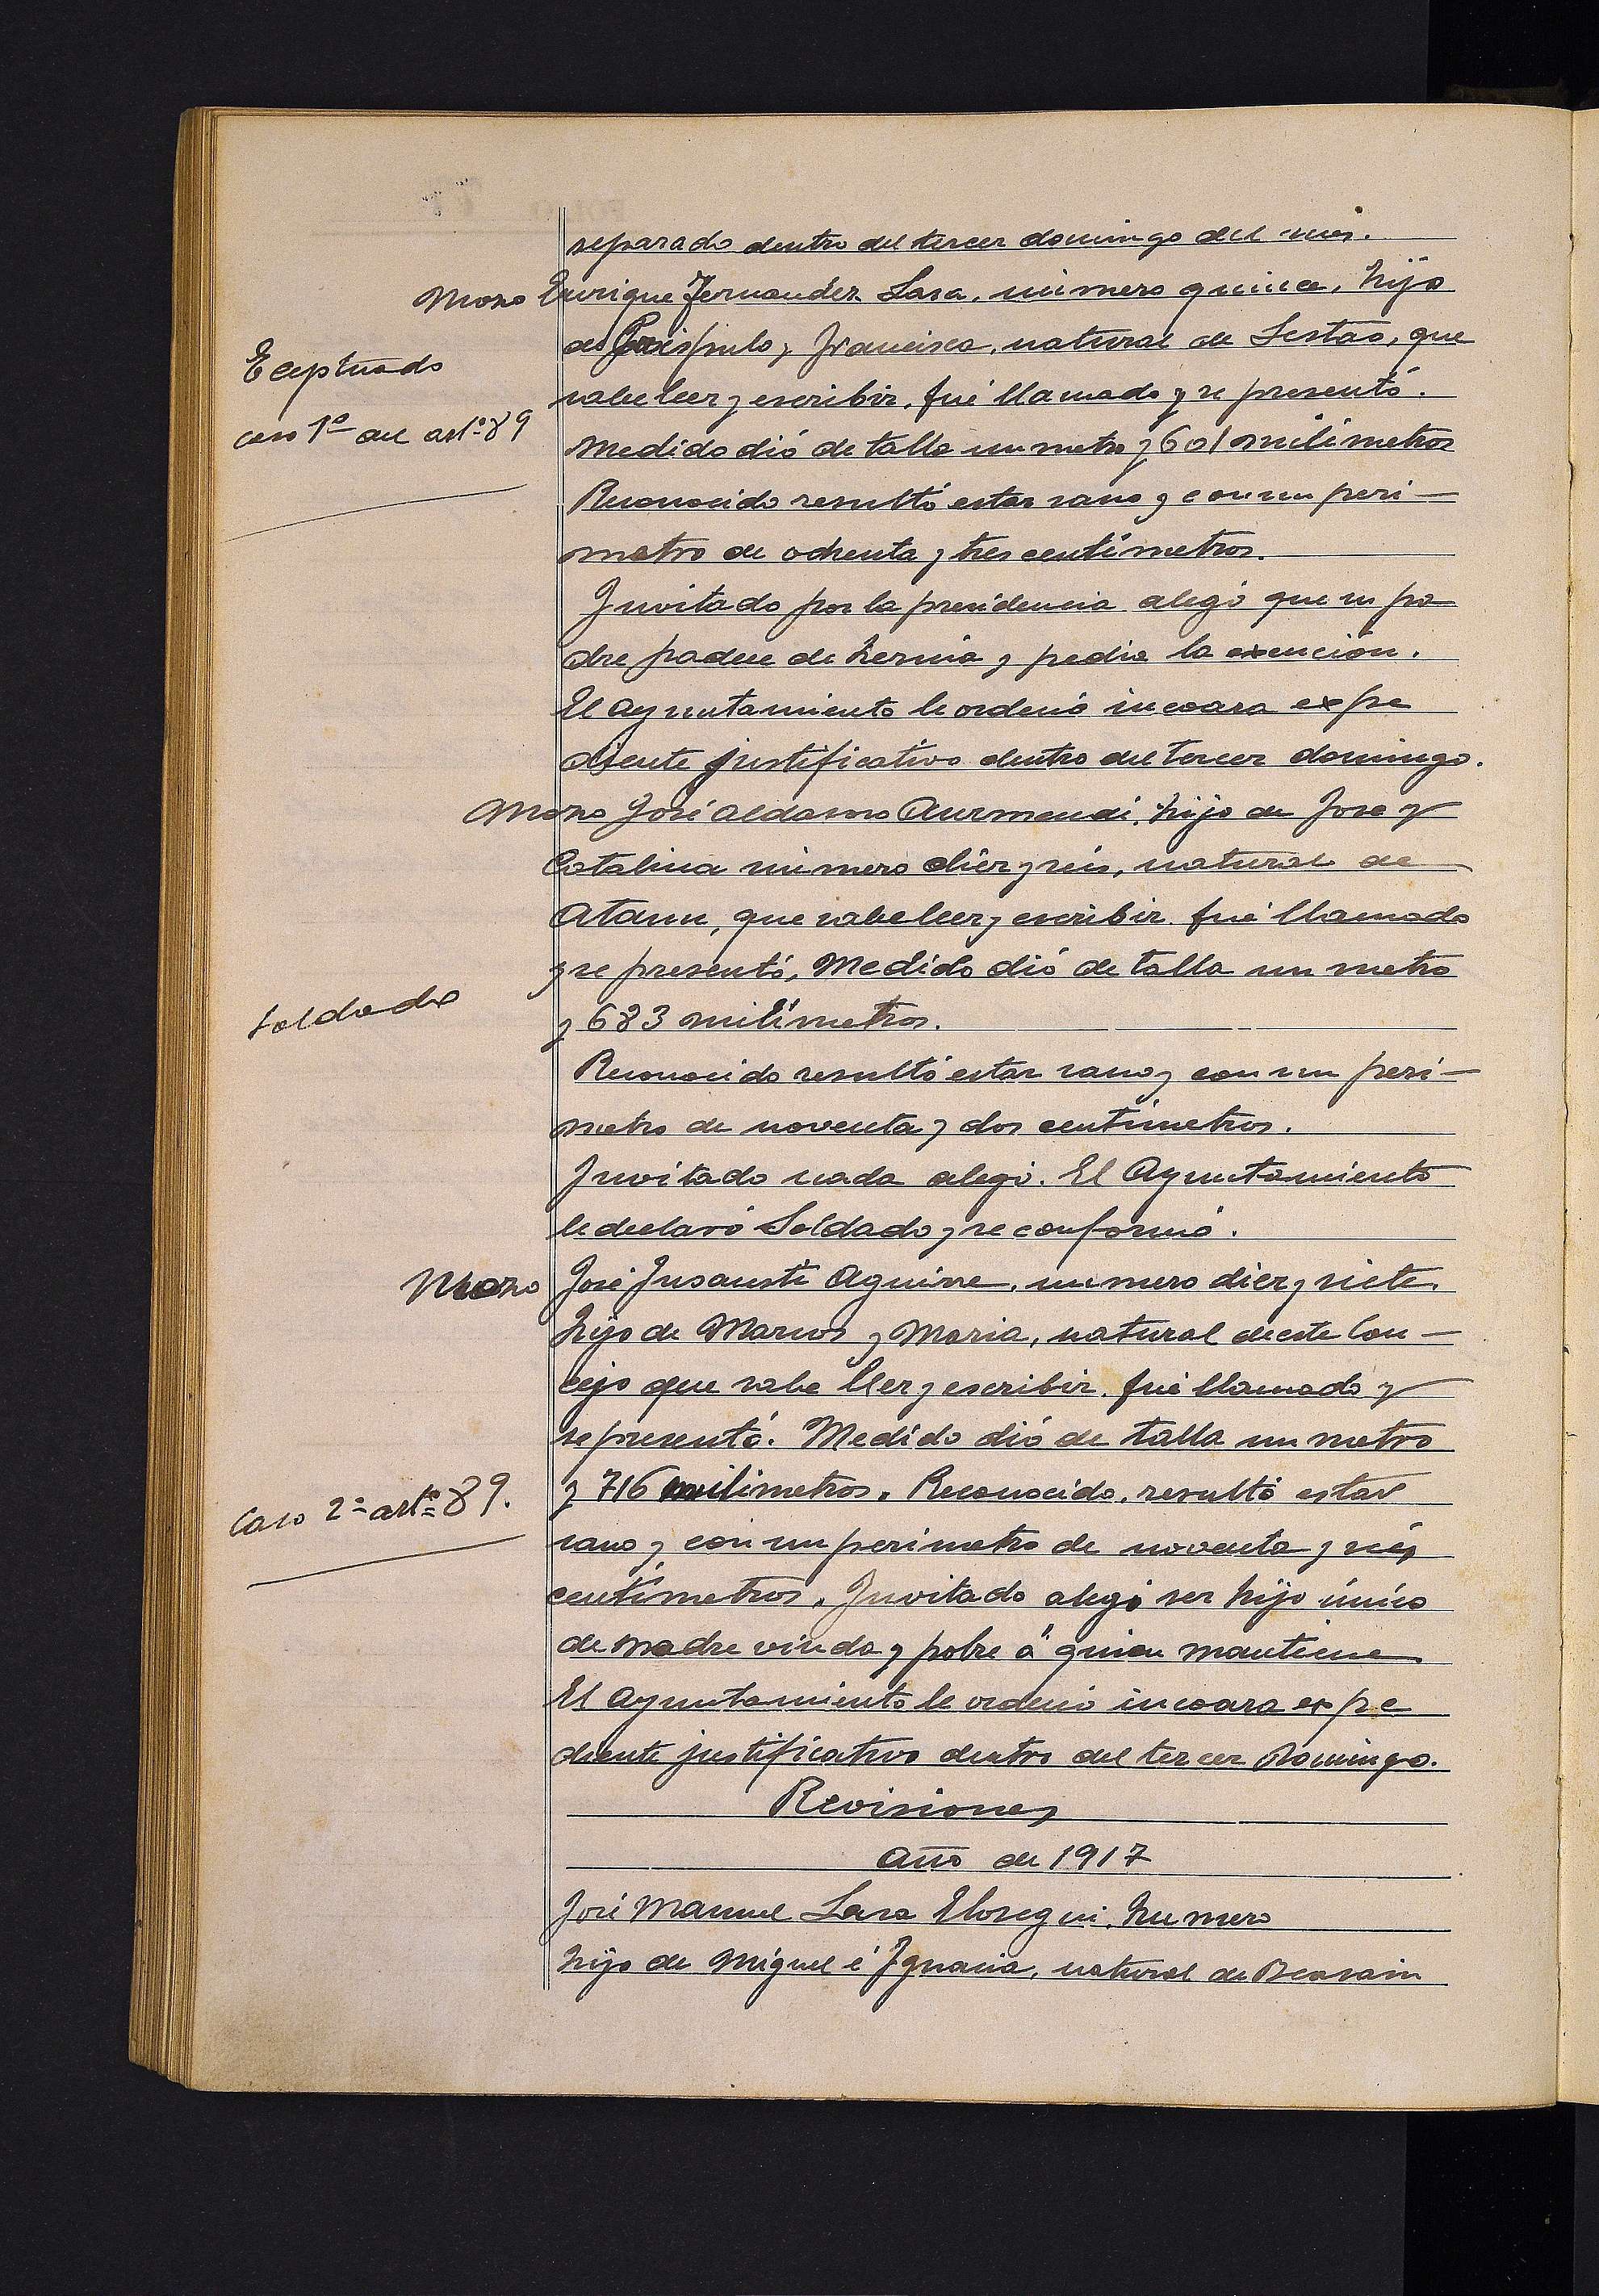 separado dentro del tercer domingo del mes.
Mozo Enrique Fernandez Lasa, número quince, hijo
de Críspulo y Francisca, natural de Sestao, que
Eceptuado
sabe leer y escribir, fué llamado y se presentó.
caso 1º del artº 89
Medido dió de talla un metro y 601 milímetros
Reconocido resultó estar sano y con un peri-
metro de ochenta y tres centímetros.
Invitado por la presidencia alegó que su pa
dre padece de hernia y pedia la exención.
El Ayuntamiento le ordenó incoara expe
diente justificativo dentro del tercer domingo.
Mozo José Aldasoro Aurmendi, hijo de Jose y
Catalina número diez y seis, natural de
Ataun, que sabe leer y escribir fué llamado
y se presentó, Medido dió de talla un metro
Soldado
y 683 milímetros.
Reconocido resultó estar sano y con un peri-
metro de noventa y dos centímetros.
Invitado nada alegó. El Ayuntamiento
le declaró Soldado y se conformó.
Mozo José Insausti Aguirre, número diez y siete
hijo de Marcos y Maria, natural de este Con-
cejo que sabe ller y escribir, fué llamado y
se presentó. Medido dió de talla un metro
Caso 2º artº 89.
y 716 milimetros. Reconocido, resultó estar
sano y con un perimetro de noventa y seis
centímetros. Invitado alegó ser hijo único
de madre viuda y pobre á quien mantiene
El Ayuntamiento le ordenó incoara expe
diente justificativo dentro del tercer Domingo.
Revisiones
Año de 1917
José Manuel Lasa Elosegui, Numero
hijo de Miguel é Ignacia, natural de Beasain